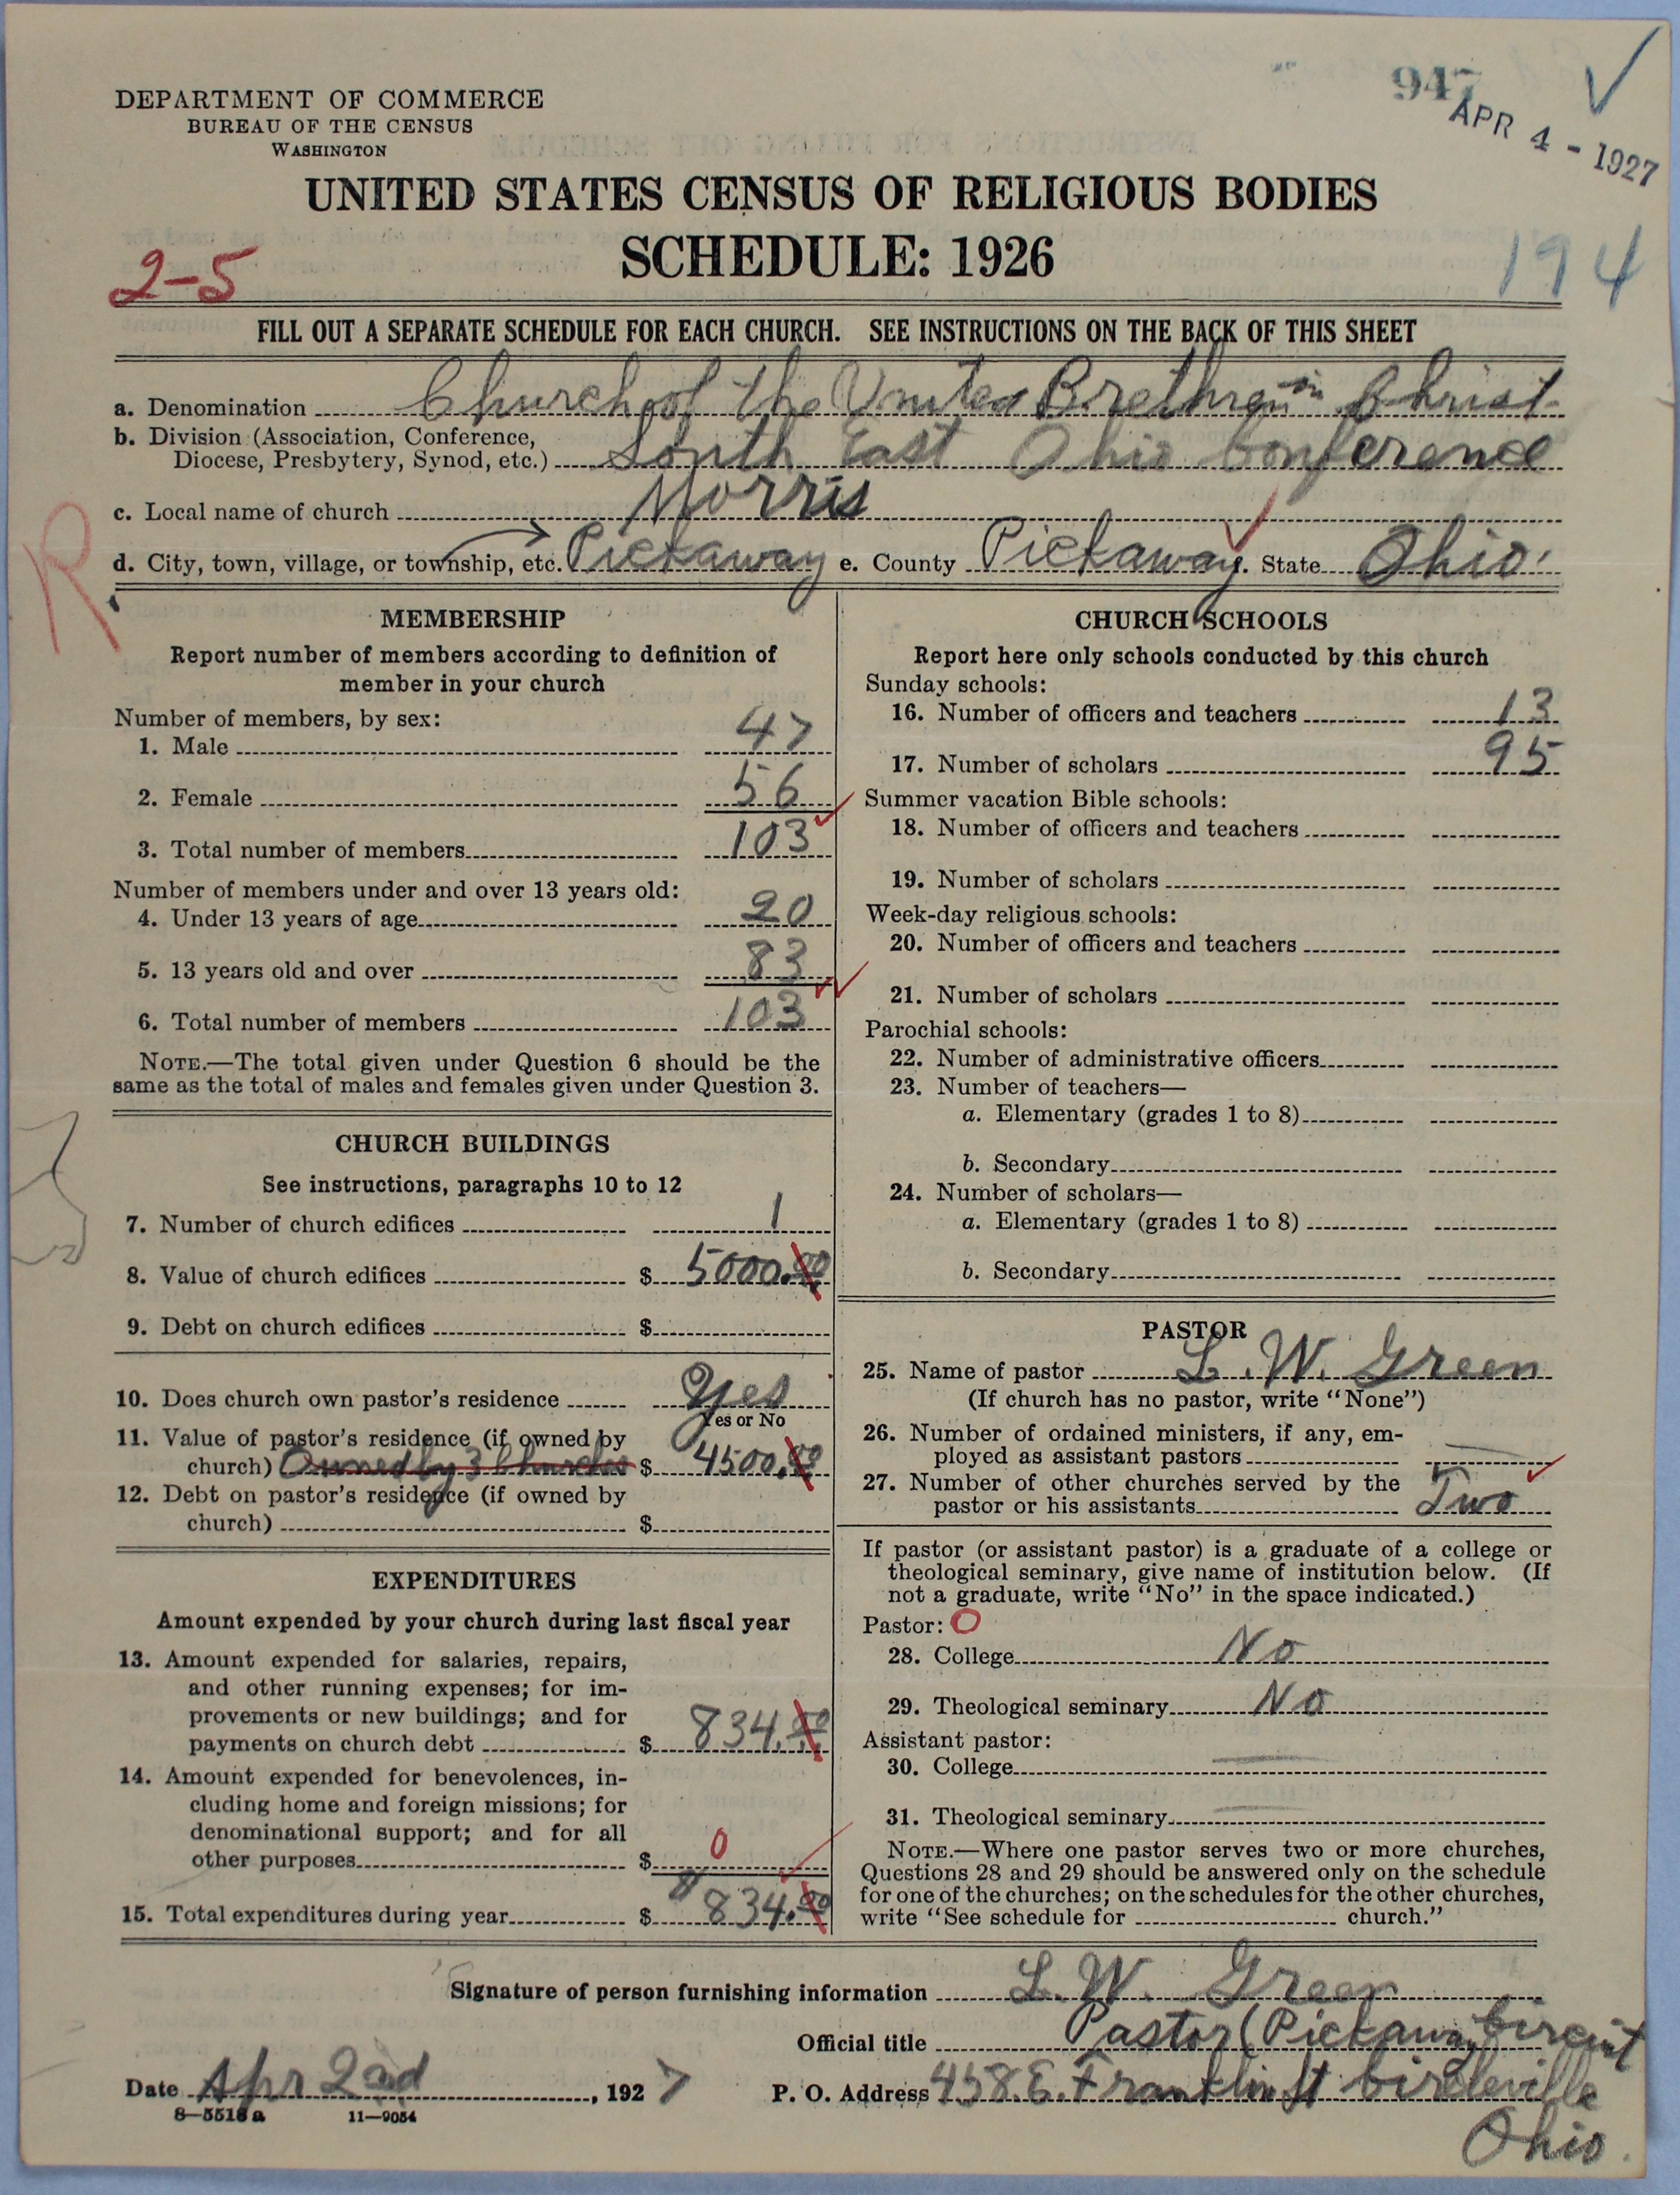 947
APR 4 - 1927
DEPARTMENT OF COMMERCE
BUREAU OF THE CENSUS
WASHINGTON
UNITED STATES CENSUS OF RELIGIOUS BODIES
SCHEDULE: 1926
2-5
194
FILL OUT A SEPARATE SCHEDULE FOR EACH CHURCH. SEE INSTRUCTIONS ON THE BACK OF THIS SHEET
a. Denomination Church of the United Brethren in Christ
b. Division (Association, Conference,
Diocese, Presbytery, Synod, etc.) South East Ohio Conference
c. Local name of church Morris
R
d. City, town, village, or township, etc. Pickaway e. County Pickaway. State Ohio.
MEMBERSHIP
Report number of members according to definition of
member in your church
Number of members, by sex:
1. Male 47
2. Female 56
3. Total number of members 103
Number of members under and over 13 years old:
4. Under 13 years of age 20
5. 13 years old and over 83
6. Total number of members 103
NOTE.—The total given under Question 6 should be the
same as the total of males and females given under Question 3.
CHURCH BUILDINGS
See instructions, paragraphs 10 to 12
7. Number of church edifices 1
8. Value of church edifices $ 5000.00
9. Debt on church edifices $
10. Does church own pastor's residence Yes
Yes or No
11. Value of pastor's residence (if owned by
church) Owned by 3 Churches $ 4500.00
12. Debt on pastor's residence (if owned by
church) $
EXPENDITURES
Amount expended by your church during last fiscal year
13. Amount expended for salaries, repairs,
and other running expenses; for im-
provements or new buildings; and for
payments on church debt $ 834.00
14. Amount expended for benevolences, in-
cluding home and foreign missions; for
denominational support; and for all
other purposes $ 0
15. Total expenditures during year $ 834.00
CHURCH SCHOOLS
Report here only schools conducted by this church
Sunday schools:
16. Number of officers and teachers 13
17. Number of scholars 95
Summer vacation Bible schools:
18. Number of officers and teachers
19. Number of scholars
Week-day religious schools:
20. Number of officers and teachers
21. Number of scholars
Parochial schools:
22. Number of administrative officers
23. Number of teachers—
a. Elementary (grades 1 to 8)
b. Secondary
24. Number of scholars—
a. Elementary (grades 1 to 8)
b. Secondary
PASTOR
25. Name of pastor L. W. Green
(If church has no pastor, write "None")
26. Number of ordained ministers, if any, em-
ployed as assistant pastors
27. Number of other churches served by the
pastor or his assistants Two
If pastor (or assistant pastor) is a graduate of a college or
theological seminary, give name of institution below. (If
not a graduate, write "No" in the space indicated.)
Pastor: O
28. College No
29. Theological seminary No
Assistant pastor:
30. College
31. Theological seminary
NOTE.—Where one pastor serves two or more churches,
Questions 28 and 29 should be answered only on the schedule
for one of the churches; on the schedules for the other churches,
write "See schedule for church."
Signature of person furnishing information L. W. Green
Official title Pastor (Pickaway Circuit
Date Apr 2nd, 1927
P. O. Address 458 E. Franklin St Circleville
Ohio.
8-5518a 11-9054